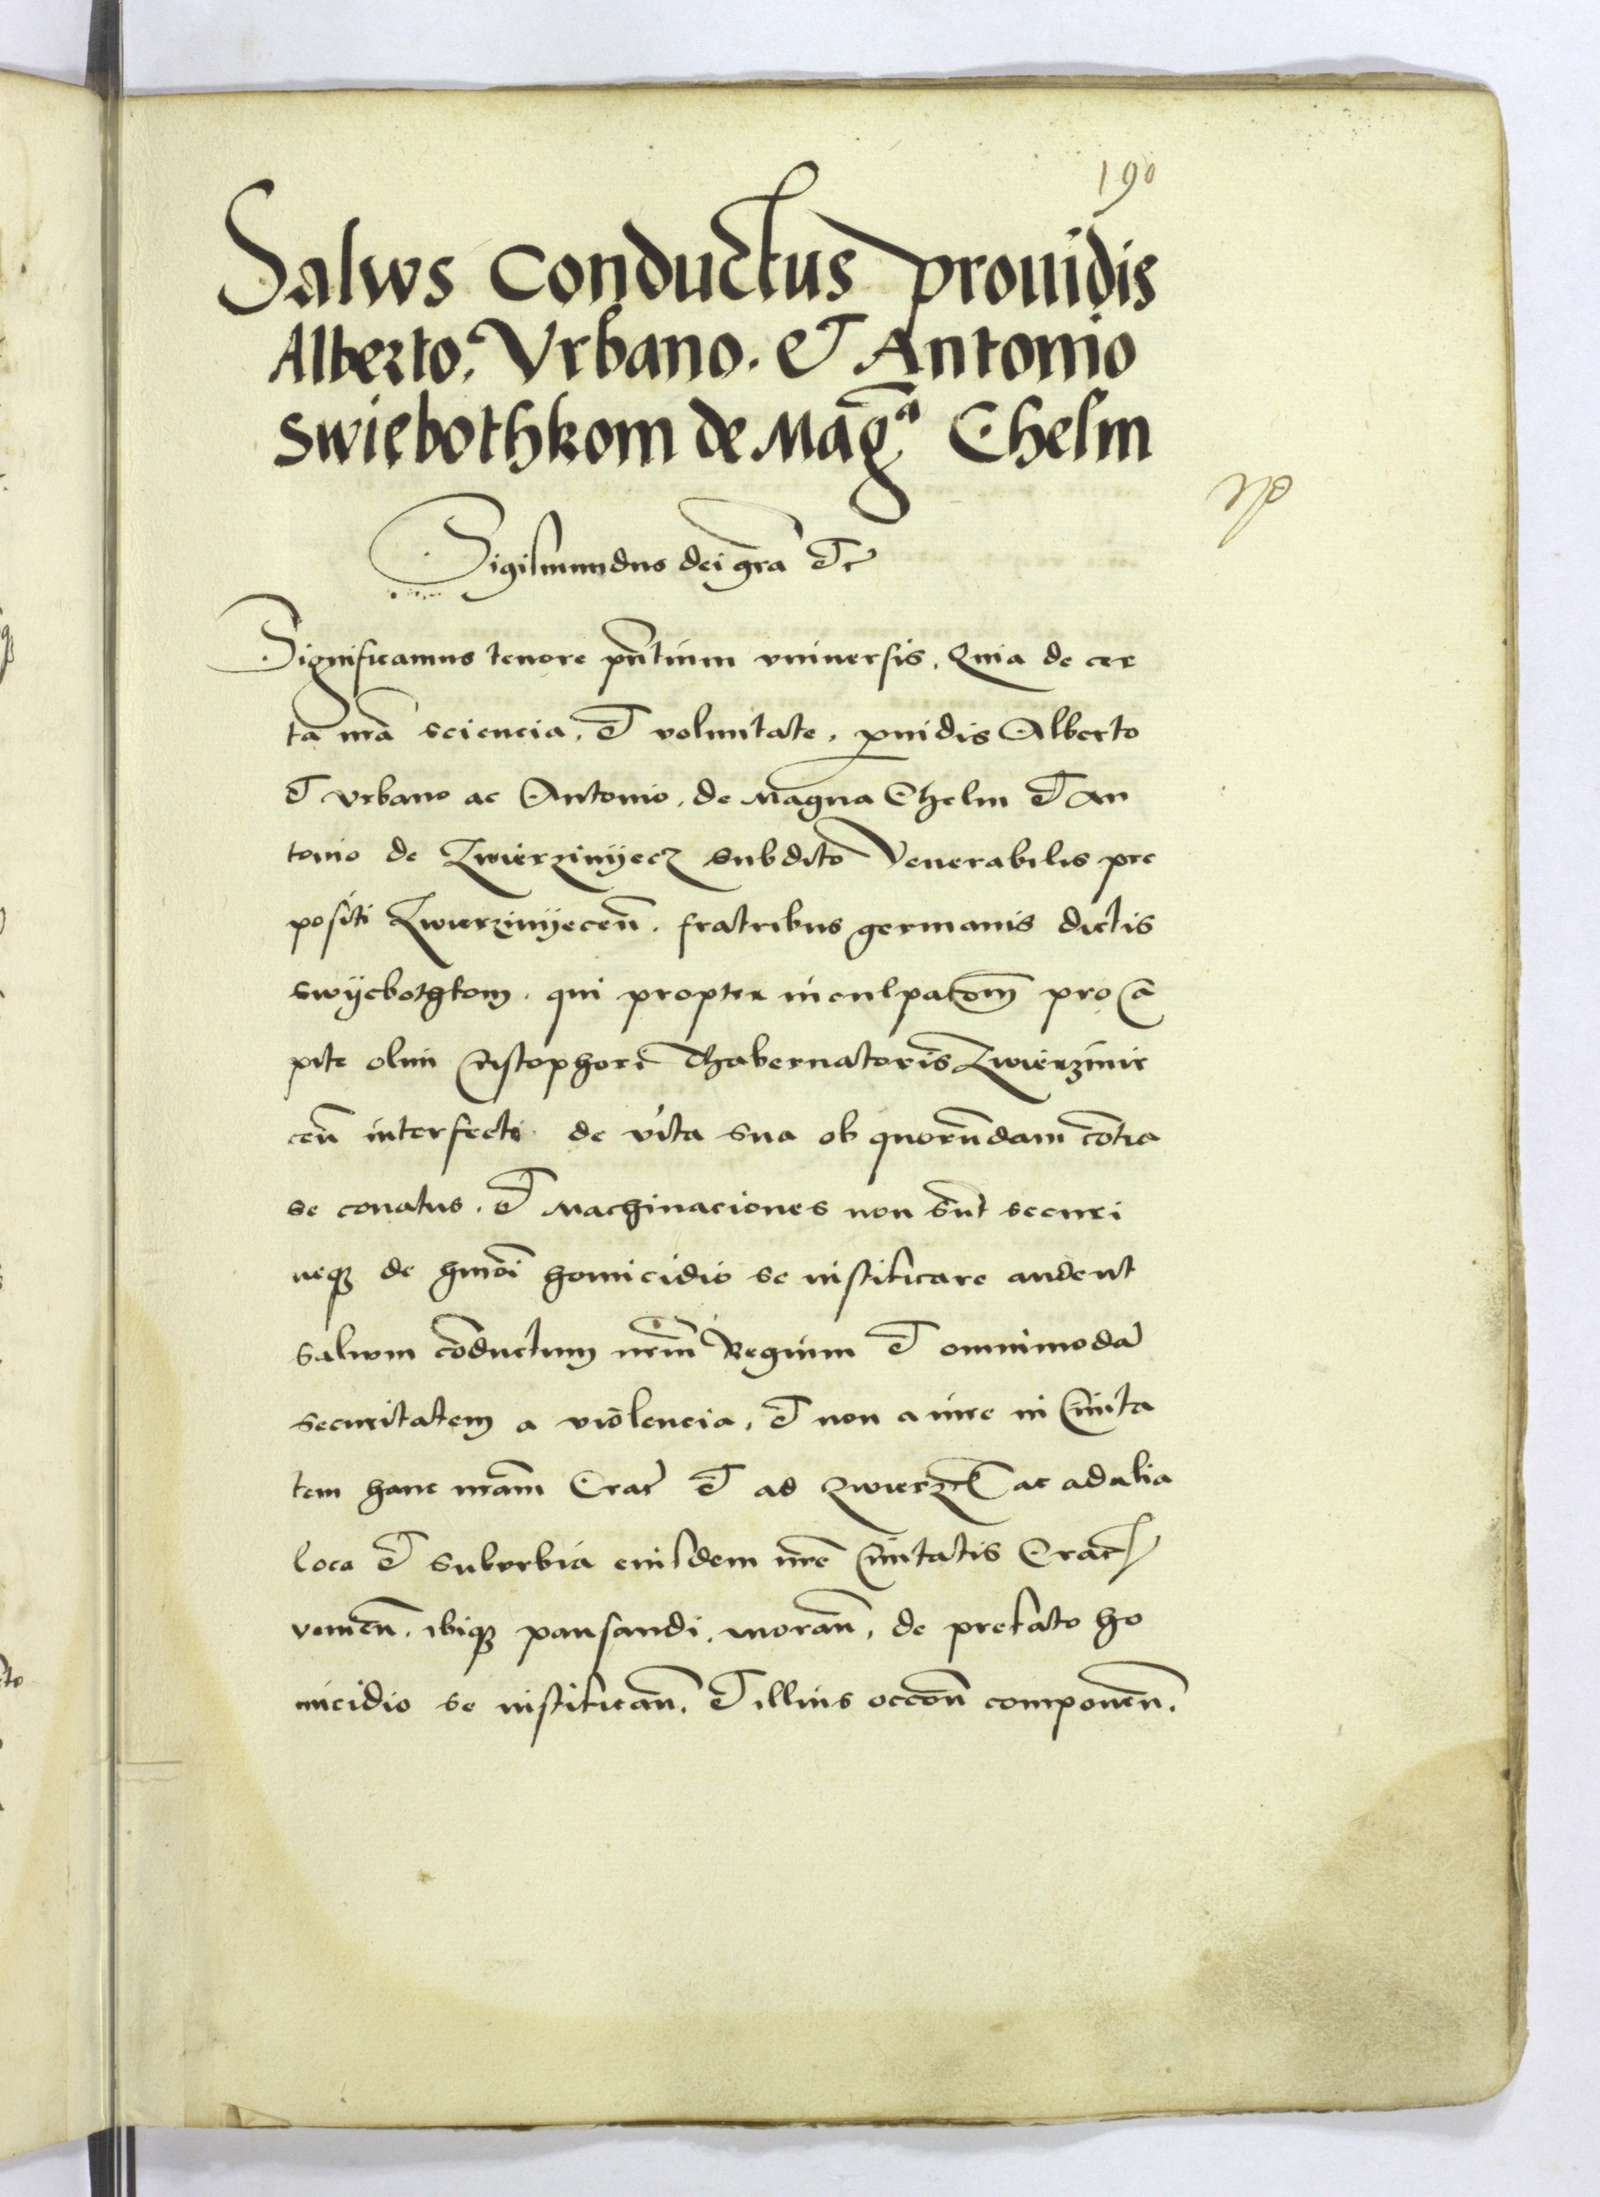 190
Salws Conductus prouidis
Alberto. Vrbano. et Antonio
Swiebothkom de Magª Chelm
Sigismundus dei gra etc
Significamus tenore pntium vniuersis. Quia de cer
ta nra sciencia. et voluntate. puidis Alberto
et vrbano ac Antonio. de Magna Chelm et An
tonio de Zwierzinyecz subdito Venerabilis pre
positi Zwierzinyecen. fratribus germanis dictis
swyebothkom. qui propter inculpacom pro ca
pite olim Cristophori Thabernatoris Zwierzinie
cen interfecti de vita sua ob quorundam contra
se conatus. et Machinaciones non sunt securi
neqz de hmoi homicidio se iustificare audent
saluum conductum nrum Regium et omnimoda
securitatem a violencia, et non a iure in Ciuita
tem hanc nram Crac et ad Zwierz ac ad alia
loca et suburbia eiusdem nre Ciuitatis Crac
venien. ibiqz pausandi. moran, de prefato ho
micidio se iustifican. et illius occon componen.